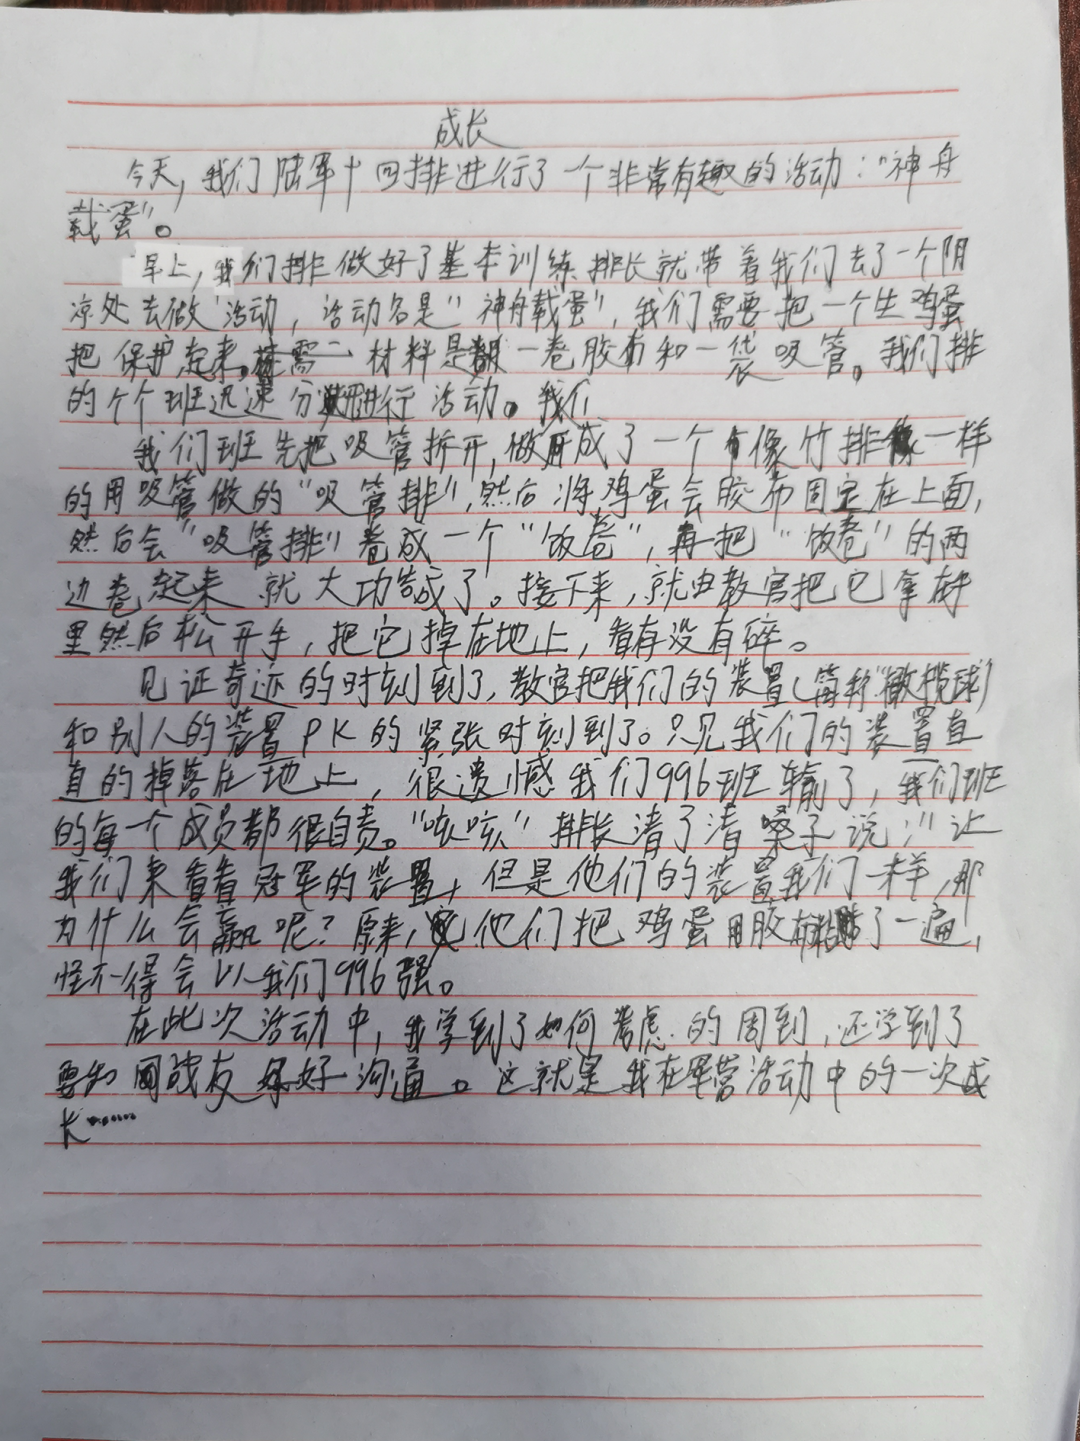 成长
今天，我们陆军十四排进行了一个非常有趣的活动：“神舟
载蛋”。
早上，我们排做好了基本训练排长就带着我们去了一个阴
凉处去做活动，活动名是“神舟载蛋”，我们需要把一个生鸡蛋
把保护起来。需材料是一卷胶布和一袋吸管。我们排
的个个班迅速分进行活动。我们
我们班先把吸管拆开，做成了一个像竹排一样
的用吸管做的“吸管排”，然后将鸡蛋会胶布固定在上面，
然后会“吸管排”卷成一个“饭卷”，再把“饭卷”的两
边卷起来就大功造成了。接下来，就由教官把它拿在手
里然后松开手，把它掉在地上，看有没有碎。
见证奇迹的时刻到了，教官把我们的装置（简称“橄榄球”）
和别人的装置PK的紧张时刻到了。只见我们的装置直
直的掉落在地上，很遗憾我们996班输了，我们班
的每一个成员都很自责。“咳咳”排长清了清嗓子说：“让
我们来看看冠军的装置，但是他们的装置我们一样，那
为什么会赢呢？原来，他们把鸡蛋用胶布粘了一遍，
怪不得会以我们996强。
在此次活动中，我学到了如何考虑的周到，还学到了
要和同战友好好沟通。这就是我在军营活动中的一次成
长……